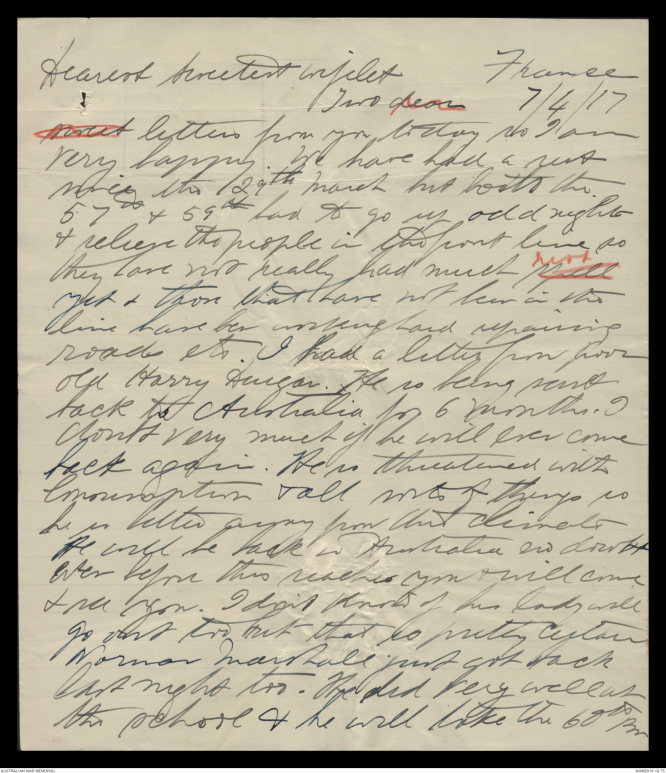 Dearest sweetest wifelet France
Two dear 7/4/17
sweet letters from you today so I am
very happy. We have had a rest
since the 29th March but both the
57th & 59th had to go up odd nights
& relieve the people in the front line so
they have not really had much rest
yet & those that have not been in the
line have been working hard repairing
roads etc. I had a letter from poor
old Harry Duigan. He is being sent
back to Australia for 6 months. I
doubt very much if he will ever come
back again. He is threatened with
Consumption & all sorts of things so
he is better away from this climate
He will be back in Australia no doubt
even before this reaches you & will come
& see you. I don't know if his lady will
go out too but that is pretty certain
Norman Marshall just got back
last night too. He did very well at
the school & he will take the 60th Bn
AUSTRALIAN WAR MEMORIAL